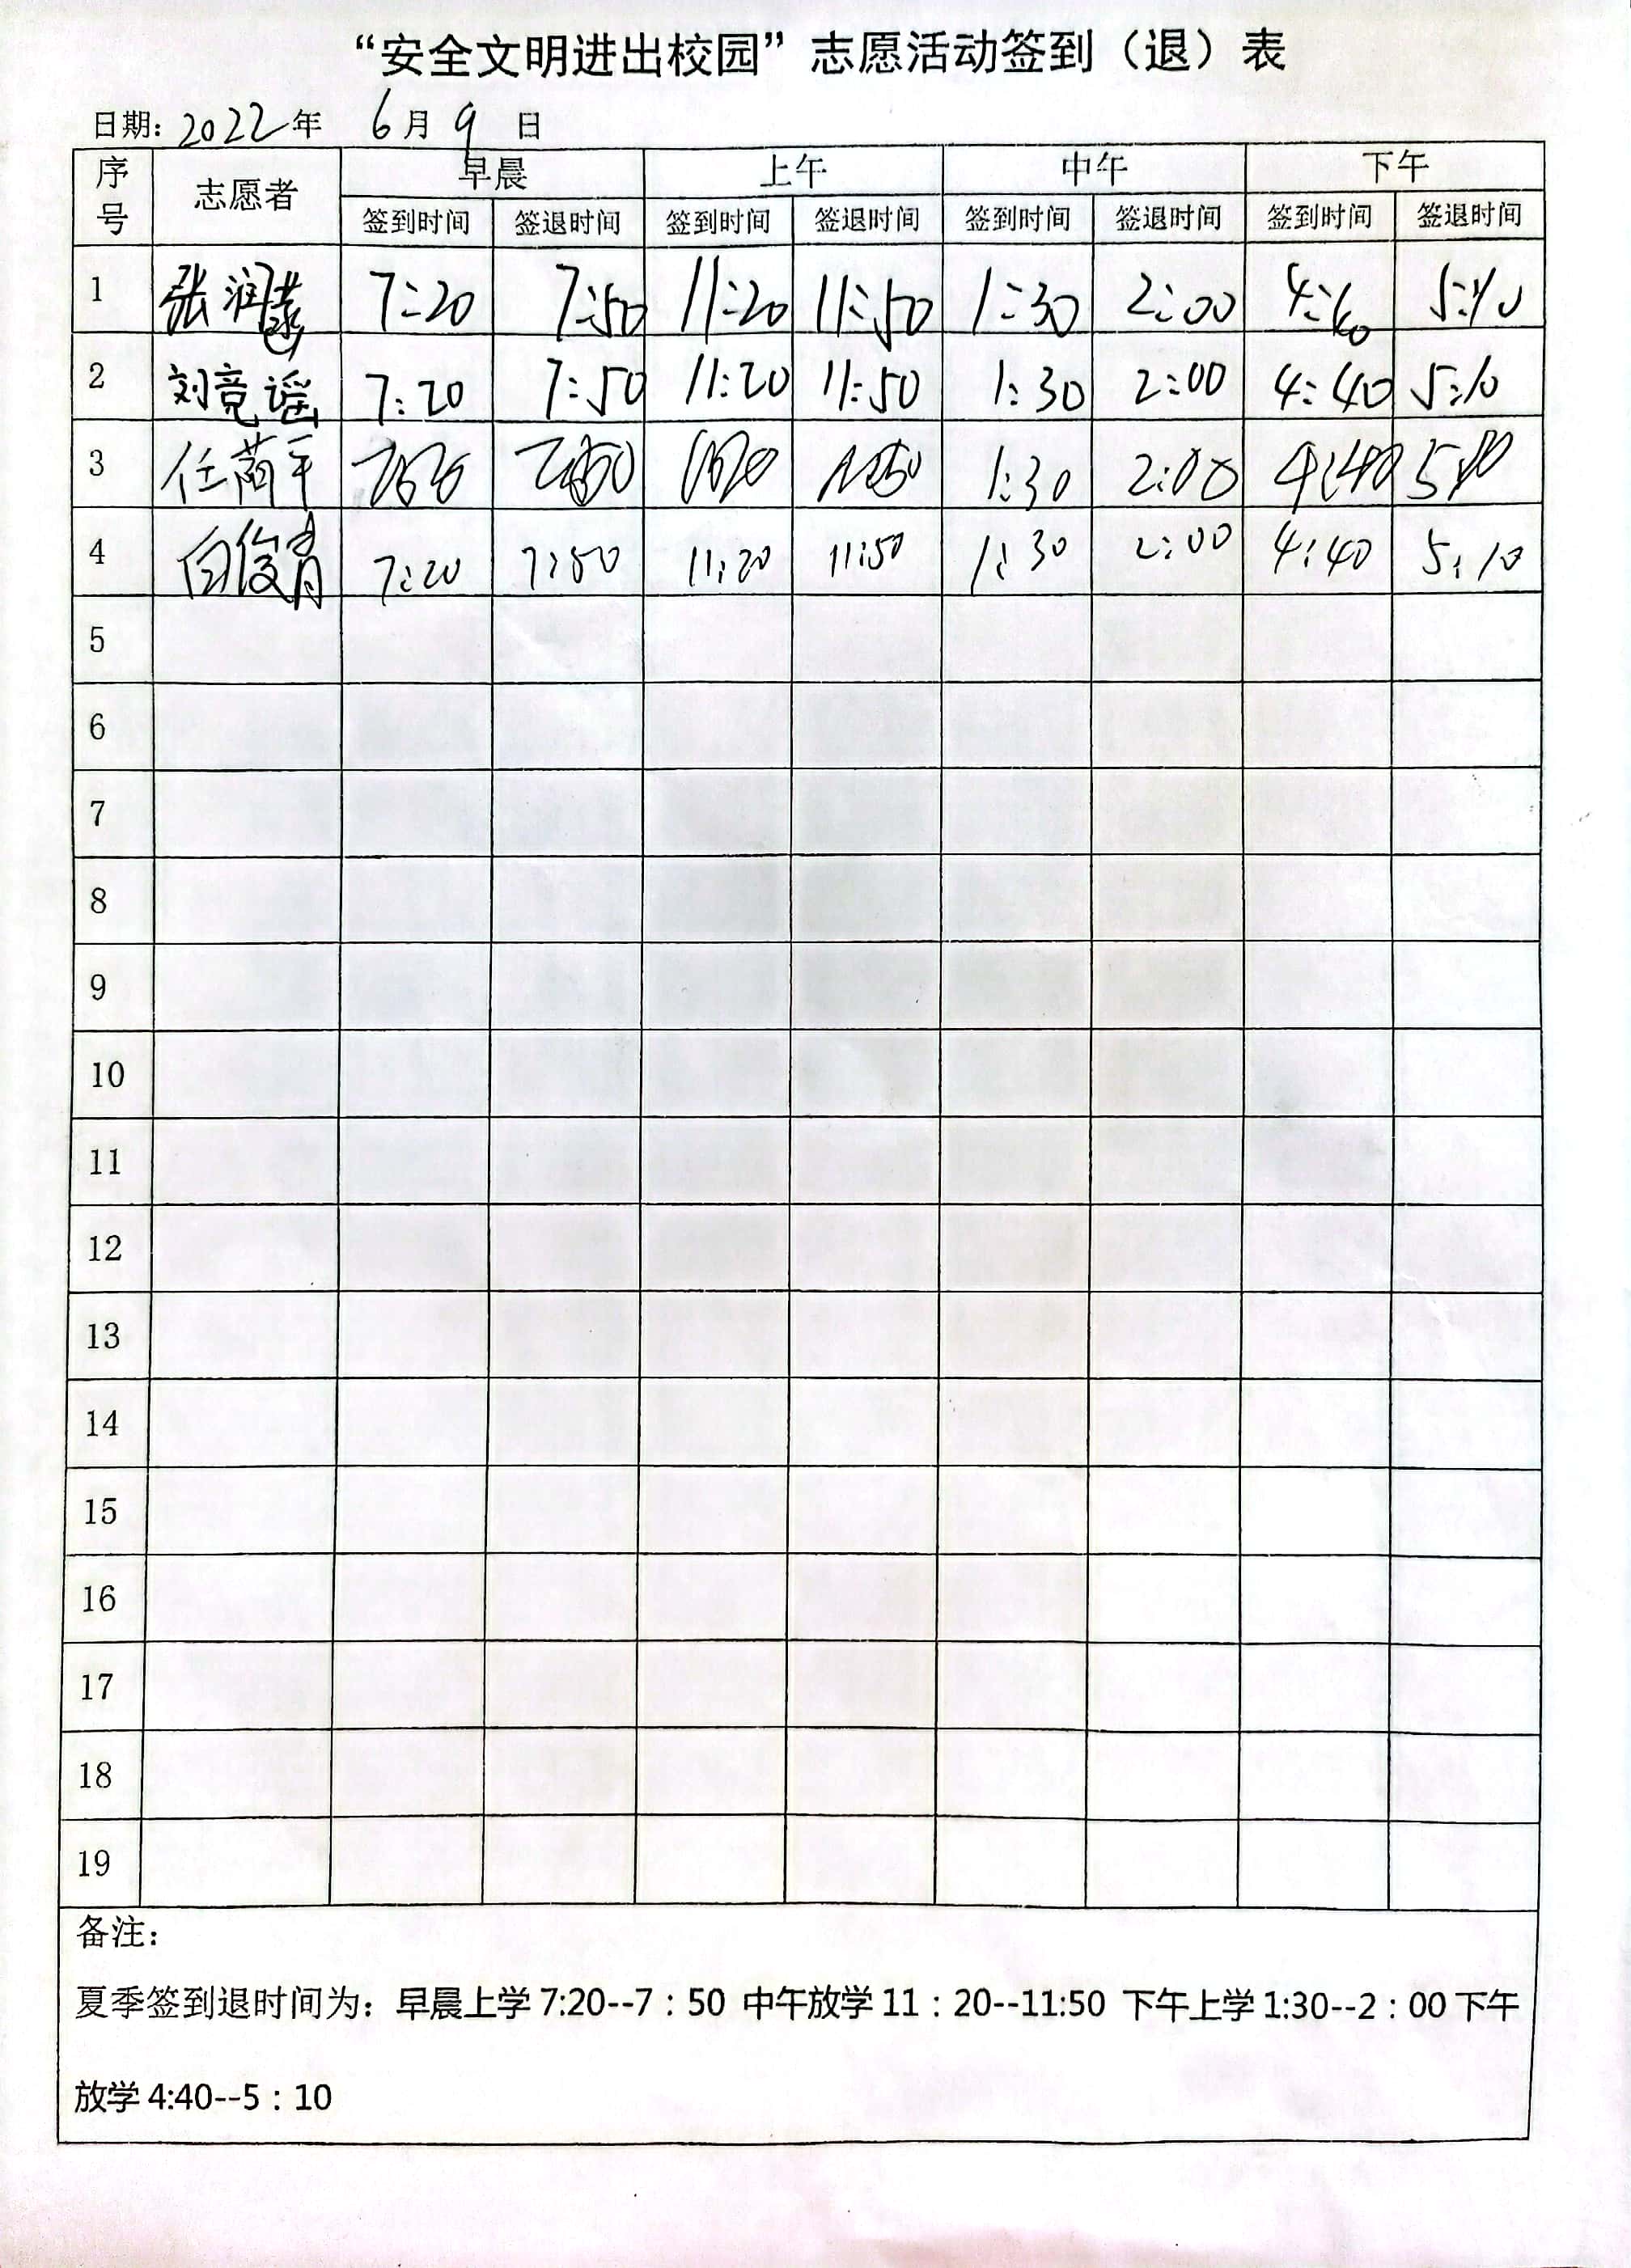 “安全文明进出校园”志愿活动签到（退）表
日期：2022年 6月9 日
序号 志愿者 早晨 上午 中午 下午
签到时间 签退时间 签到时间 签退时间 签到时间 签退时间 签到时间 签退时间
1 张润 7:20 7:50 11:20 11:50 1:30 2:00 4:40 5:10
2 刘竞谣 7:20 7:50 11:20 11:50 1:30 2:00 4:40 5:10
3 任 平 1:30 2:00 4:40 5:10
4 白俊青 7:20 7:50 11:20 11:50 1:30 2:00 4:40 5:10
5
6
7
8
9
10
11
12
13
14
15
16
17
18
19
备注：
夏季签到退时间为：早晨上学 7:20--7：50 中午放学 11：20--11:50 下午上学 1:30--2：00 下午
放学 4:40--5：10